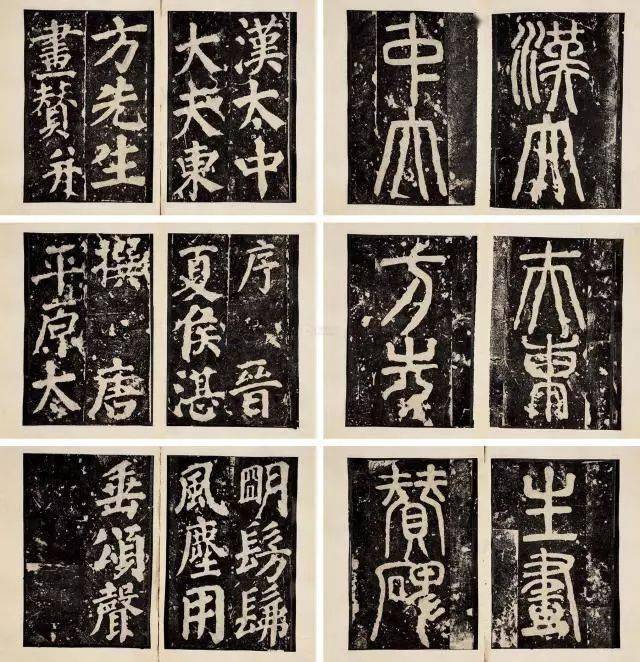 漢太
中大
夫東
方先
生畫
贊碑
漢太中
大夫東
方先生
畫贊并
序 晉
夏侯湛
撰 唐
平原太
明髣髴
風塵用
垂頌聲